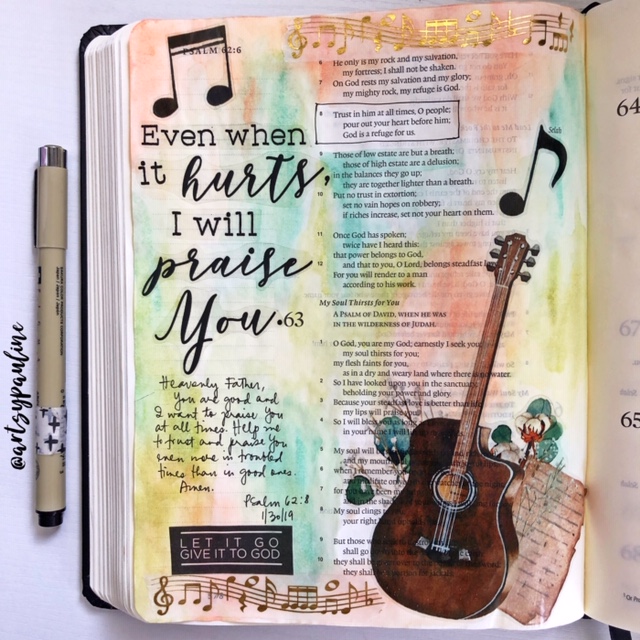 PSALM 62:6
6 He only is my rock and my salvation,
my fortress; I shall not be shaken.
7 On God rests my salvation and my glory;
my mighty rock, my refuge is God.
8 Trust in him at all times, O people;
pour out your heart before him;
God is a refuge for us. Selah
9 Those of low estate are but a breath;
those of high estate are a delusion;
in the balances they go up;
they are together lighter than a breath.
10 Put no trust in extortion;
set no vain hopes on robbery;
if riches increase, set not your heart on them.
11 Once God has spoken;
twice have I heard this:
that power belongs to God,
12 and that to you, O Lord, belongs steadfast
For you will render to a man
according to his work.
My Soul Thirsts for You
63 A PSALM OF DAVID, WHEN HE WAS
IN THE WILDERNESS OF JUDAH.
1 O God, you are my God; earnestly I seek you;
my soul thirsts for you;
my flesh faints for you,
as in a dry and weary land where there is no water.
2 So I have looked upon you in the sanctuary,
beholding your power and glory.
3 Because your steadfast love is better than
my lips will praise
4 So I will bless you as
in your name I will
5 My soul will
and my mouth
6 when I remember
7 for you have been
8 My soul clings
your right
9 But those who
shall go
10 they shall be
they shall
Even when
it hurts,
I will
praise
You.
Heavenly Father,
You are good and
I want to praise You
at all times. Help me
to trust and praise You
even more in troubled
times than in good ones.
Amen.
Psalm 62:8
1/30/19
LET IT GO
GIVE IT TO GOD
@artsypauline
64
65
67
68